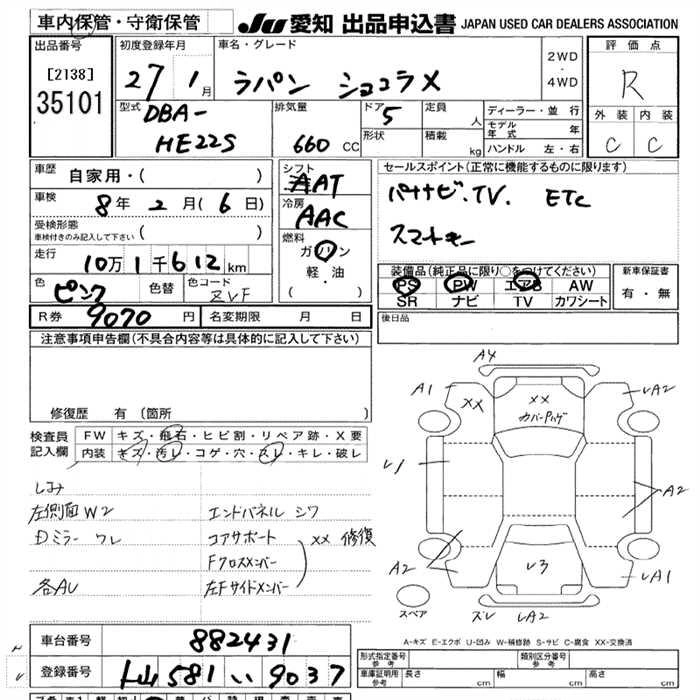 車内保管・守衛保管
JU 愛知 出品申込書 JAPAN USED CAR DEALERS ASSOCIATION
出品番号
[2138]
35101
初度登録年月
27 1月
車名・グレード
ラパン ショコラX
2WD
・
4WD
評価点
R
外装 内装
C C
型式
DBA-
HE22S
排気量
660 CC
ドア
5
形状
定員
人
積載
kg
ディーラー・並行
モデル年式 年
ハンドル 左・右
車歴
自家用・( )
車検
8年 2月(6日)
受検形態
車検付きのみ記入して下さい ( )
走行
10万1千612km
色
ピンク
色替
色コード
ZVF
シフト
AAT
冷房
AAC
燃料
ガソリン
軽・油
( )
セールスポイント(正常に機能するものに限ります)
パナナビ.TV. ETC
スマートキー
装備品(純正品に限り○をつけてください)
PS PW エアB AW
SR ナビ TV カワシート
新車保証書
有・無
R券 9070円
名変期限 月 日
後日品
注意事項申告欄(不具合内容等は具体的に記入して下さい)
修復歴 有(箇所 )
検査員
記入欄
FW キズ・飛石・ヒビ割・リペア跡・X要
内装 キズ・汚レ・コゲ・穴・スレ・キレ・破レ
しみ
左側面W2
Dミラー ワレ
各AU
エンドパネル シワ
コアサポート
Fクロスメンバー
左Fサイドメンバー
XX 修復
A4
A1
XX
XX
カバーPハゲ
レA2
レ1
A2
A2
レ3
レA1
スペア
ズレ
レA2
A-キズ E-エクボ U-凹み W-補修跡 S-サビ C-腐食 XX-交換済
車台番号
882431
登録番号
581 い 9037
形式指定番号
参考
類別区分番号
参考
車庫証明用
参考
長さ cm
幅 cm
高さ cm